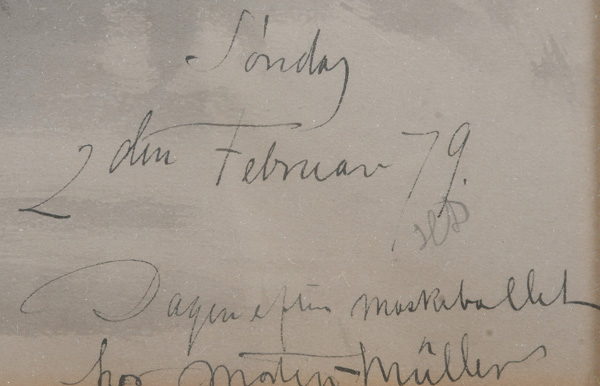 Søndag
2 den Februar 79.
Dagen efter maskeballet
hos Morten-Müller